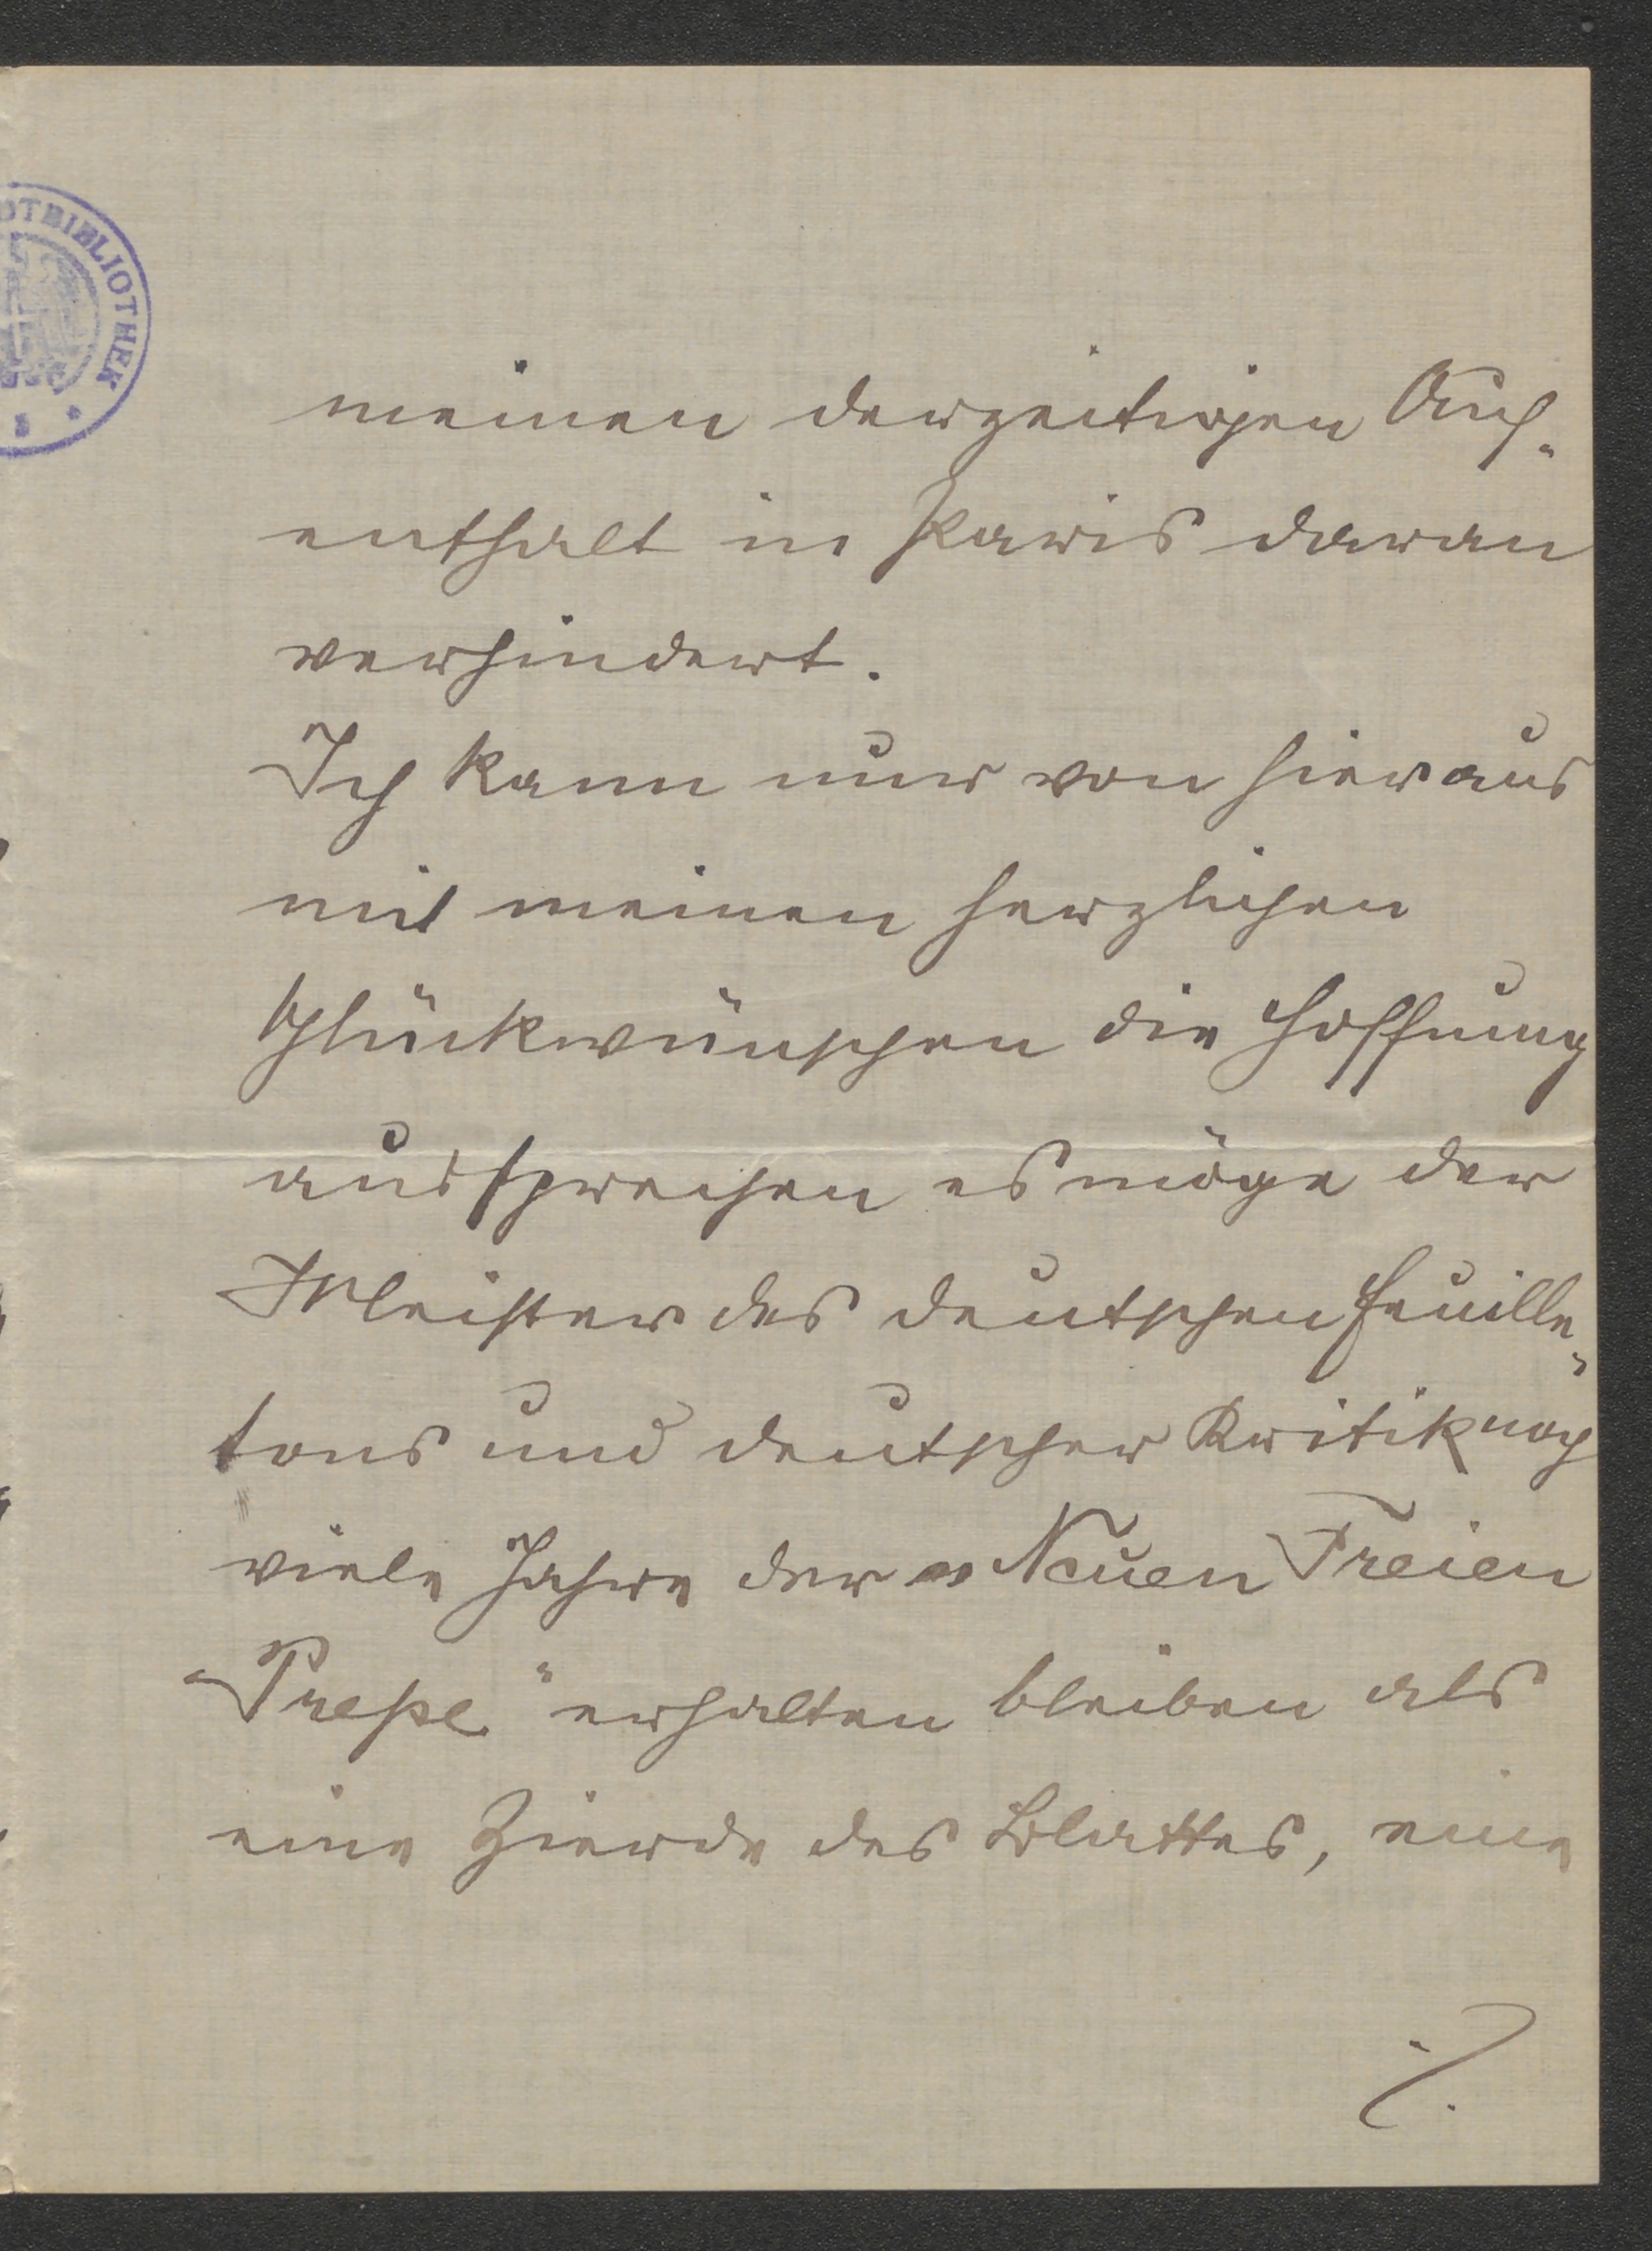 DTBIBLIOTHEK
meinen derzeitigen Auf-
enthalt in Paris daran
verhindert.
Ich kann nur von hier aus
mit meinen herzlichen
Glückwünschen die Hoffnung
aussprechen es möge der
Meister des deutschen Feuille-
tons und deutscher Kritik noch
viele Jahre der „Neuen Freien
Preße" erhalten bleiben als
eine Zierde des Blattes, eine
./.